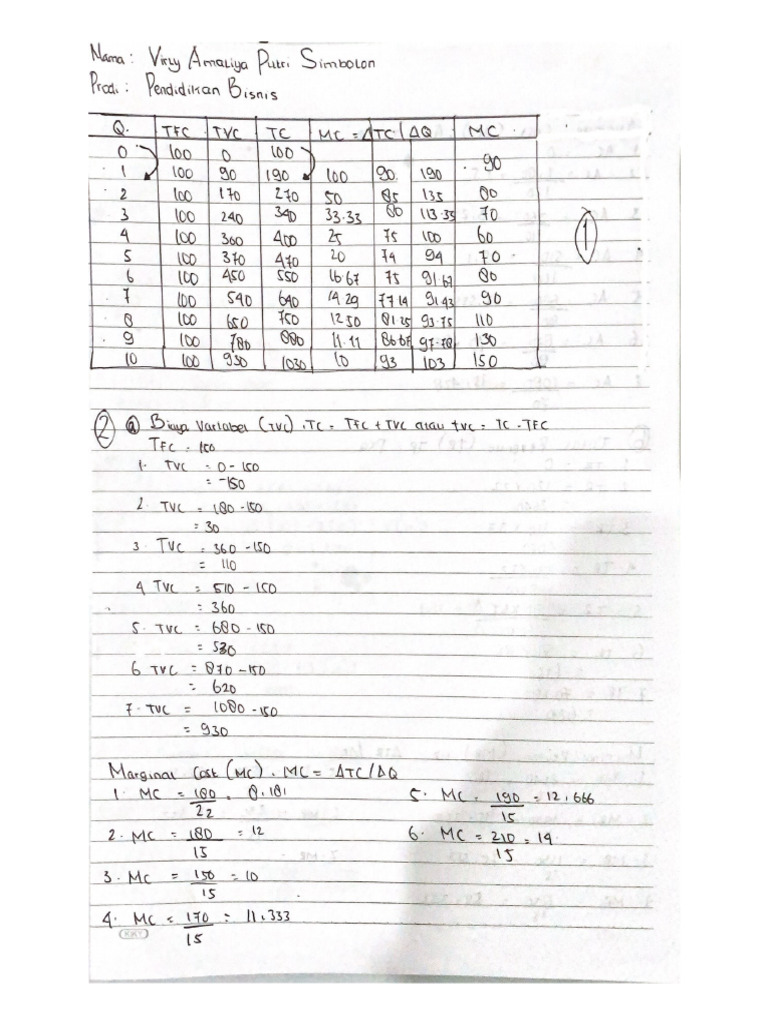 Nama : Virly Amaliya Putri Simbolon
Prodi : Pendidikan Bisnis
Q. TFC TVC TC MC = ΔTC/ΔQ MC
0 100 0 100
1 100 90 190 100 90 190 90
2 100 170 270 50 85 135 80
3 100 240 340 33.33 80 113.33 70
4 100 360 400 25 75 100 60
5 100 370 470 20 74 94 70
6 100 450 550 16.67 75 91.67 80
7 100 540 640 14.29 77.14 91.43 90
8 100 650 750 12.50 81.25 93.75 110
9 100 780 880 11.11 86.67 97.78 130
10 100 930 1030 10 93 103 150
1
2 a Biaya Variabel (TVC) . TC = TFC + TVC atau TVC = TC - TFC
TFC = 150
1. TVC = 0 - 150
= -150
2. TVC = 180 - 150
= 30
3. TVC = 360 - 150
= 110
4 TVC = 510 - 150
= 360
5. TVC = 680 - 150
= 530
6 TVC = 870 - 150
= 620
7. TVC = 1080 - 150
= 930
Marginal Cost (MC) . MC = ΔTC/ΔQ
1. MC = 180/22 = 8.181
2. MC = 180/15 = 12
3. MC = 150/15 = 10
4. MC = 170/15 = 11.333
5. MC = 190/15 = 12.666
6. MC = 210/15 = 14